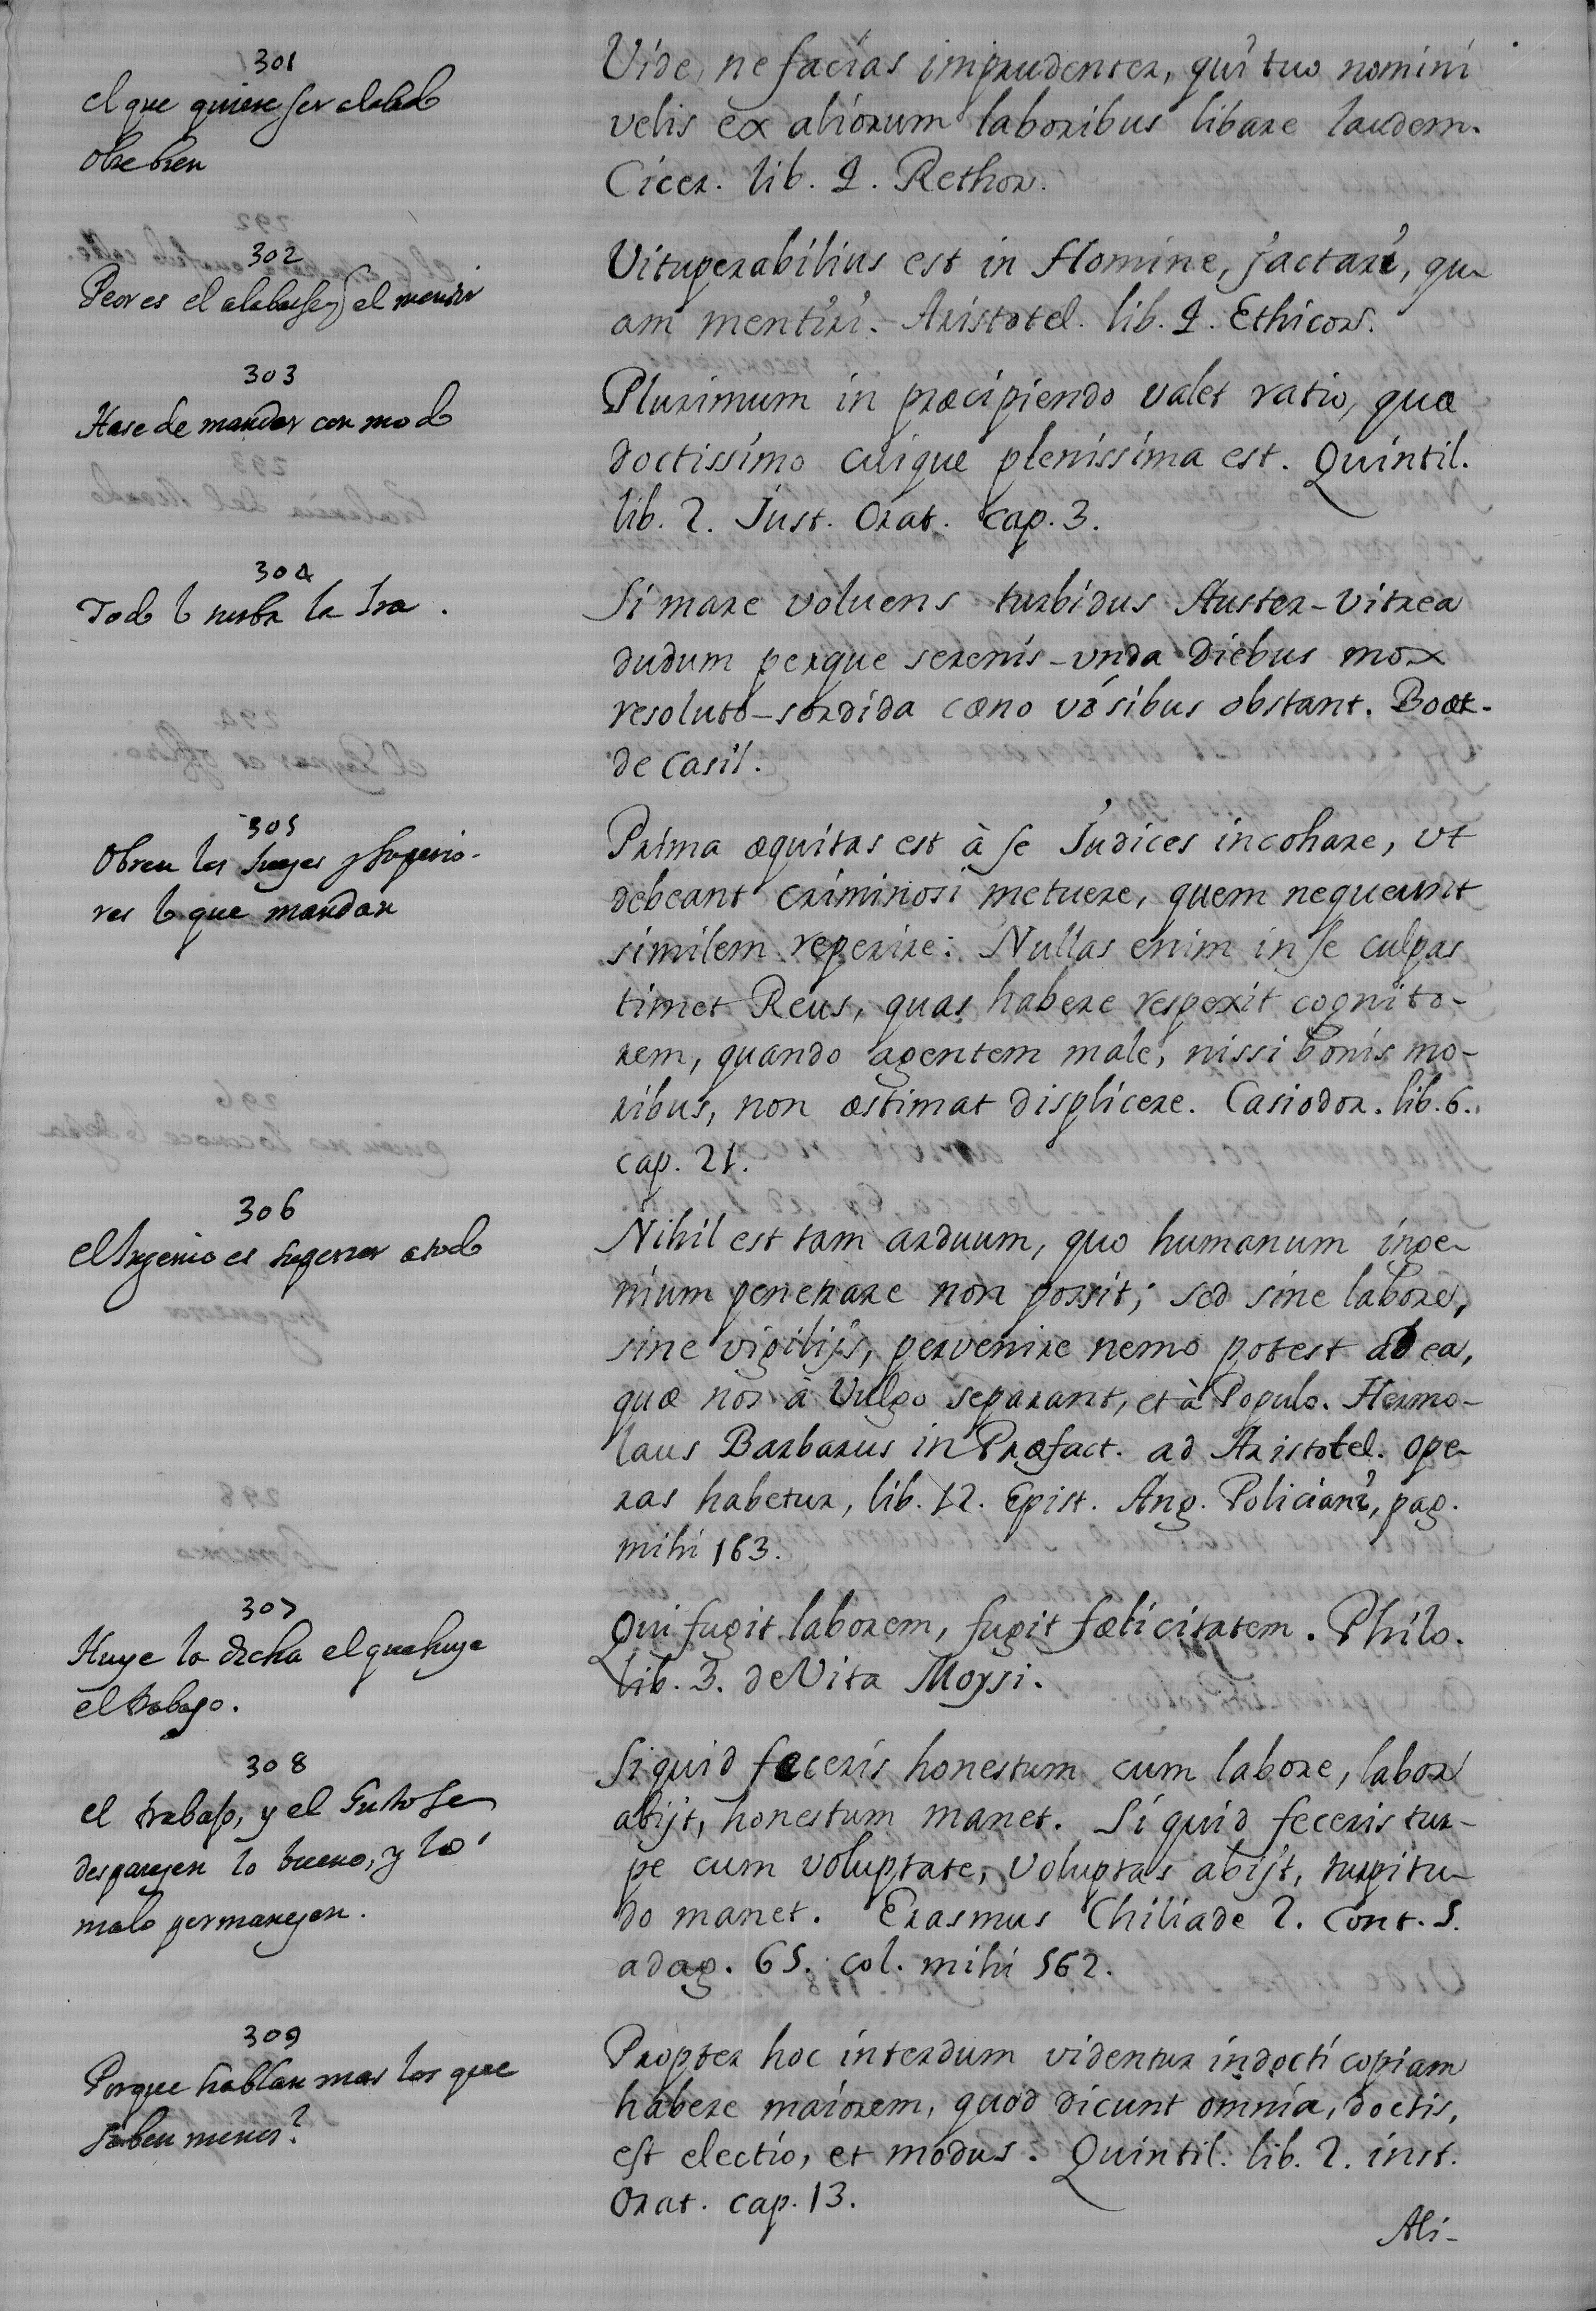 301
el que quiere ser alabado
obre bien
Vide, ne facias imprudenter, qui tuo nomini
velis ex aliorum laboribus libare laudem.
Cicer. lib. 2. Rethor.
302
Peor es el alabarse, q̃ el mentir
Vituperabilius est in Homine, jactari, qu-
am mentiri. Aristotel. lib. 2. Ethicor.
303
Hase de mandar con modo
Plurimum in præcipiendo valet ratio, quæ
doctissimo cuique plenissima est. Quintil.
lib. 2. Inst. Orat. cap. 3.
304
Todo lo turba la Ira.
Si mare voluens turbidus Auster-vitrea
dudum perque serenis-vnda diebus mox
resoluto-sordida cæno visibus obstant. Boæt.
de Casil.
305
Obren los Juezes y Superio-
res lo que mandan
Prima æquitas est à se Judices incohare, vt
debeant criminosi metuere, quem nequeunt
similem reperire: Nullas enim in se culpas
timet Reus, quas habere respexit cognito-
rem, quando agentem male, nissi bonis mo-
ribus, non æstimat displicere. Casiodor. lib. 6.
cap. 21.
306
el Ingenio es superior a todo
Nihil est tam arduum, quo humanum inge-
nium penetrare non possit; sed sine labore,
sine vigilijs, pervenire nemo potest ad ea,
quæ nos à Vulgo separant, et à Populo. Hermo-
laus Barbarus in Præfact. ad Aristotel. ope-
ras habetur, lib. 12. Epist. Ang. Policiani, pag.
mihi 163.
307
Huye la dicha el que huye
el trabajo.
Qui fugit laborem, fugit fœlicitatem. Philo.
lib. 3. de Vita Moysi.
308
el trabajo, y el Gusto se
desparezen lo bueno, y lo
malo permanezen.
Si quid feceris honestum cum labore, labor
abijt, honestum manet. Si quid feceris tur-
pe cum voluptate, voluptas abijt, turpitu-
do manet. Erasmus Chiliade 2. Cent. 5.
adag. 65. col. mihi 562.
309
Porque hablan mas los que
saben menos?
Propter hoc interdum videntur indocti copiam
habere maiorem, quod dicunt omnia, doctis,
est electio, et modus. Quintil. lib. 2. inst.
Orat. cap. 13.
Ali-